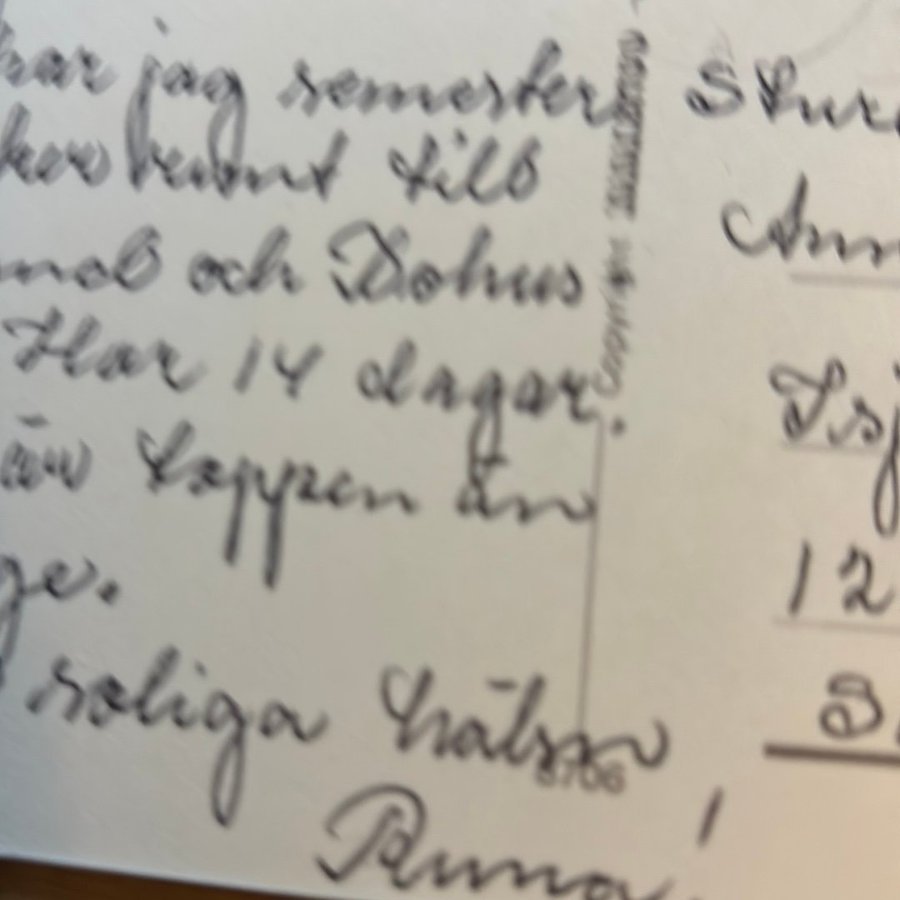 har jag semester
ker runt till
och Bohus
Har 14 dagar.
är toppen än
ge.
roliga hälsn
Runo!
Copyright
8706
Stur
Ann
Isj
12